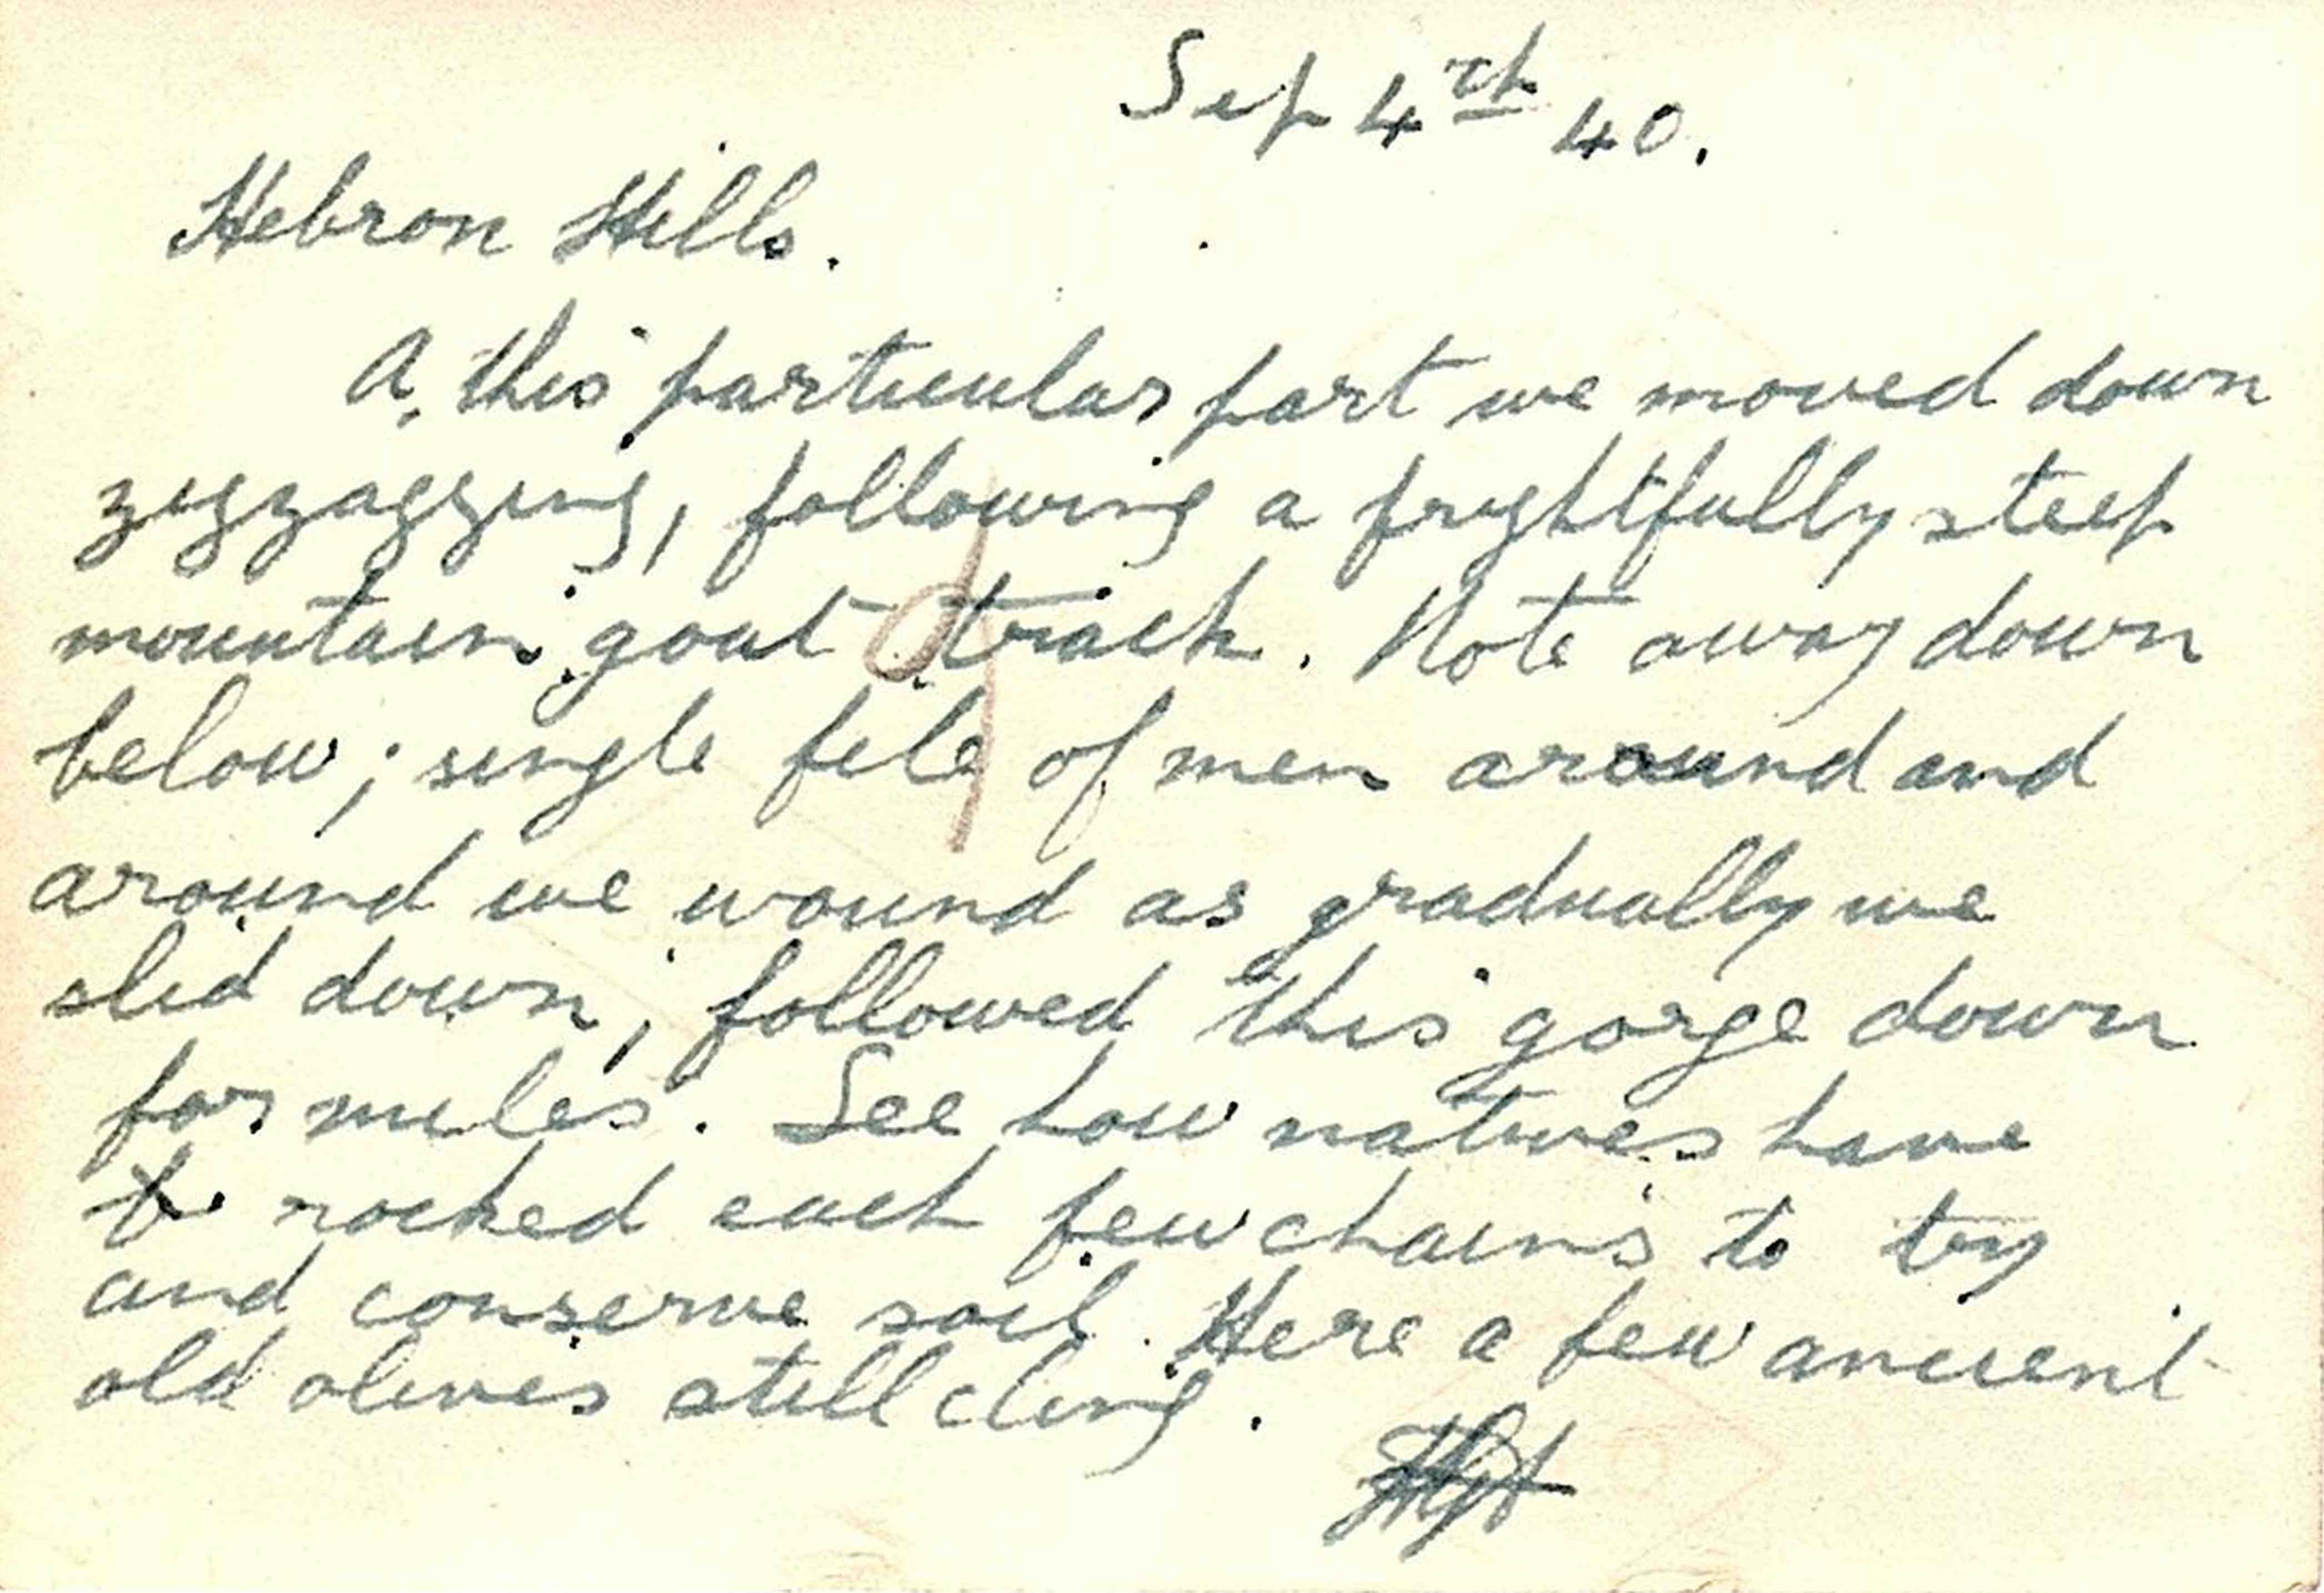 Sep 4th 40.
Hebron Hills.
A, this particular part we moved down
zigzagging, following a frightfully steep
mountain goat track. Note away down
below; single file of men around and
around we wound as gradually we
slid down, followed this gorge down
for miles. See how natives have
rocked each few chains to try
and conserve soil. Here a few ancient
old olives still cling.